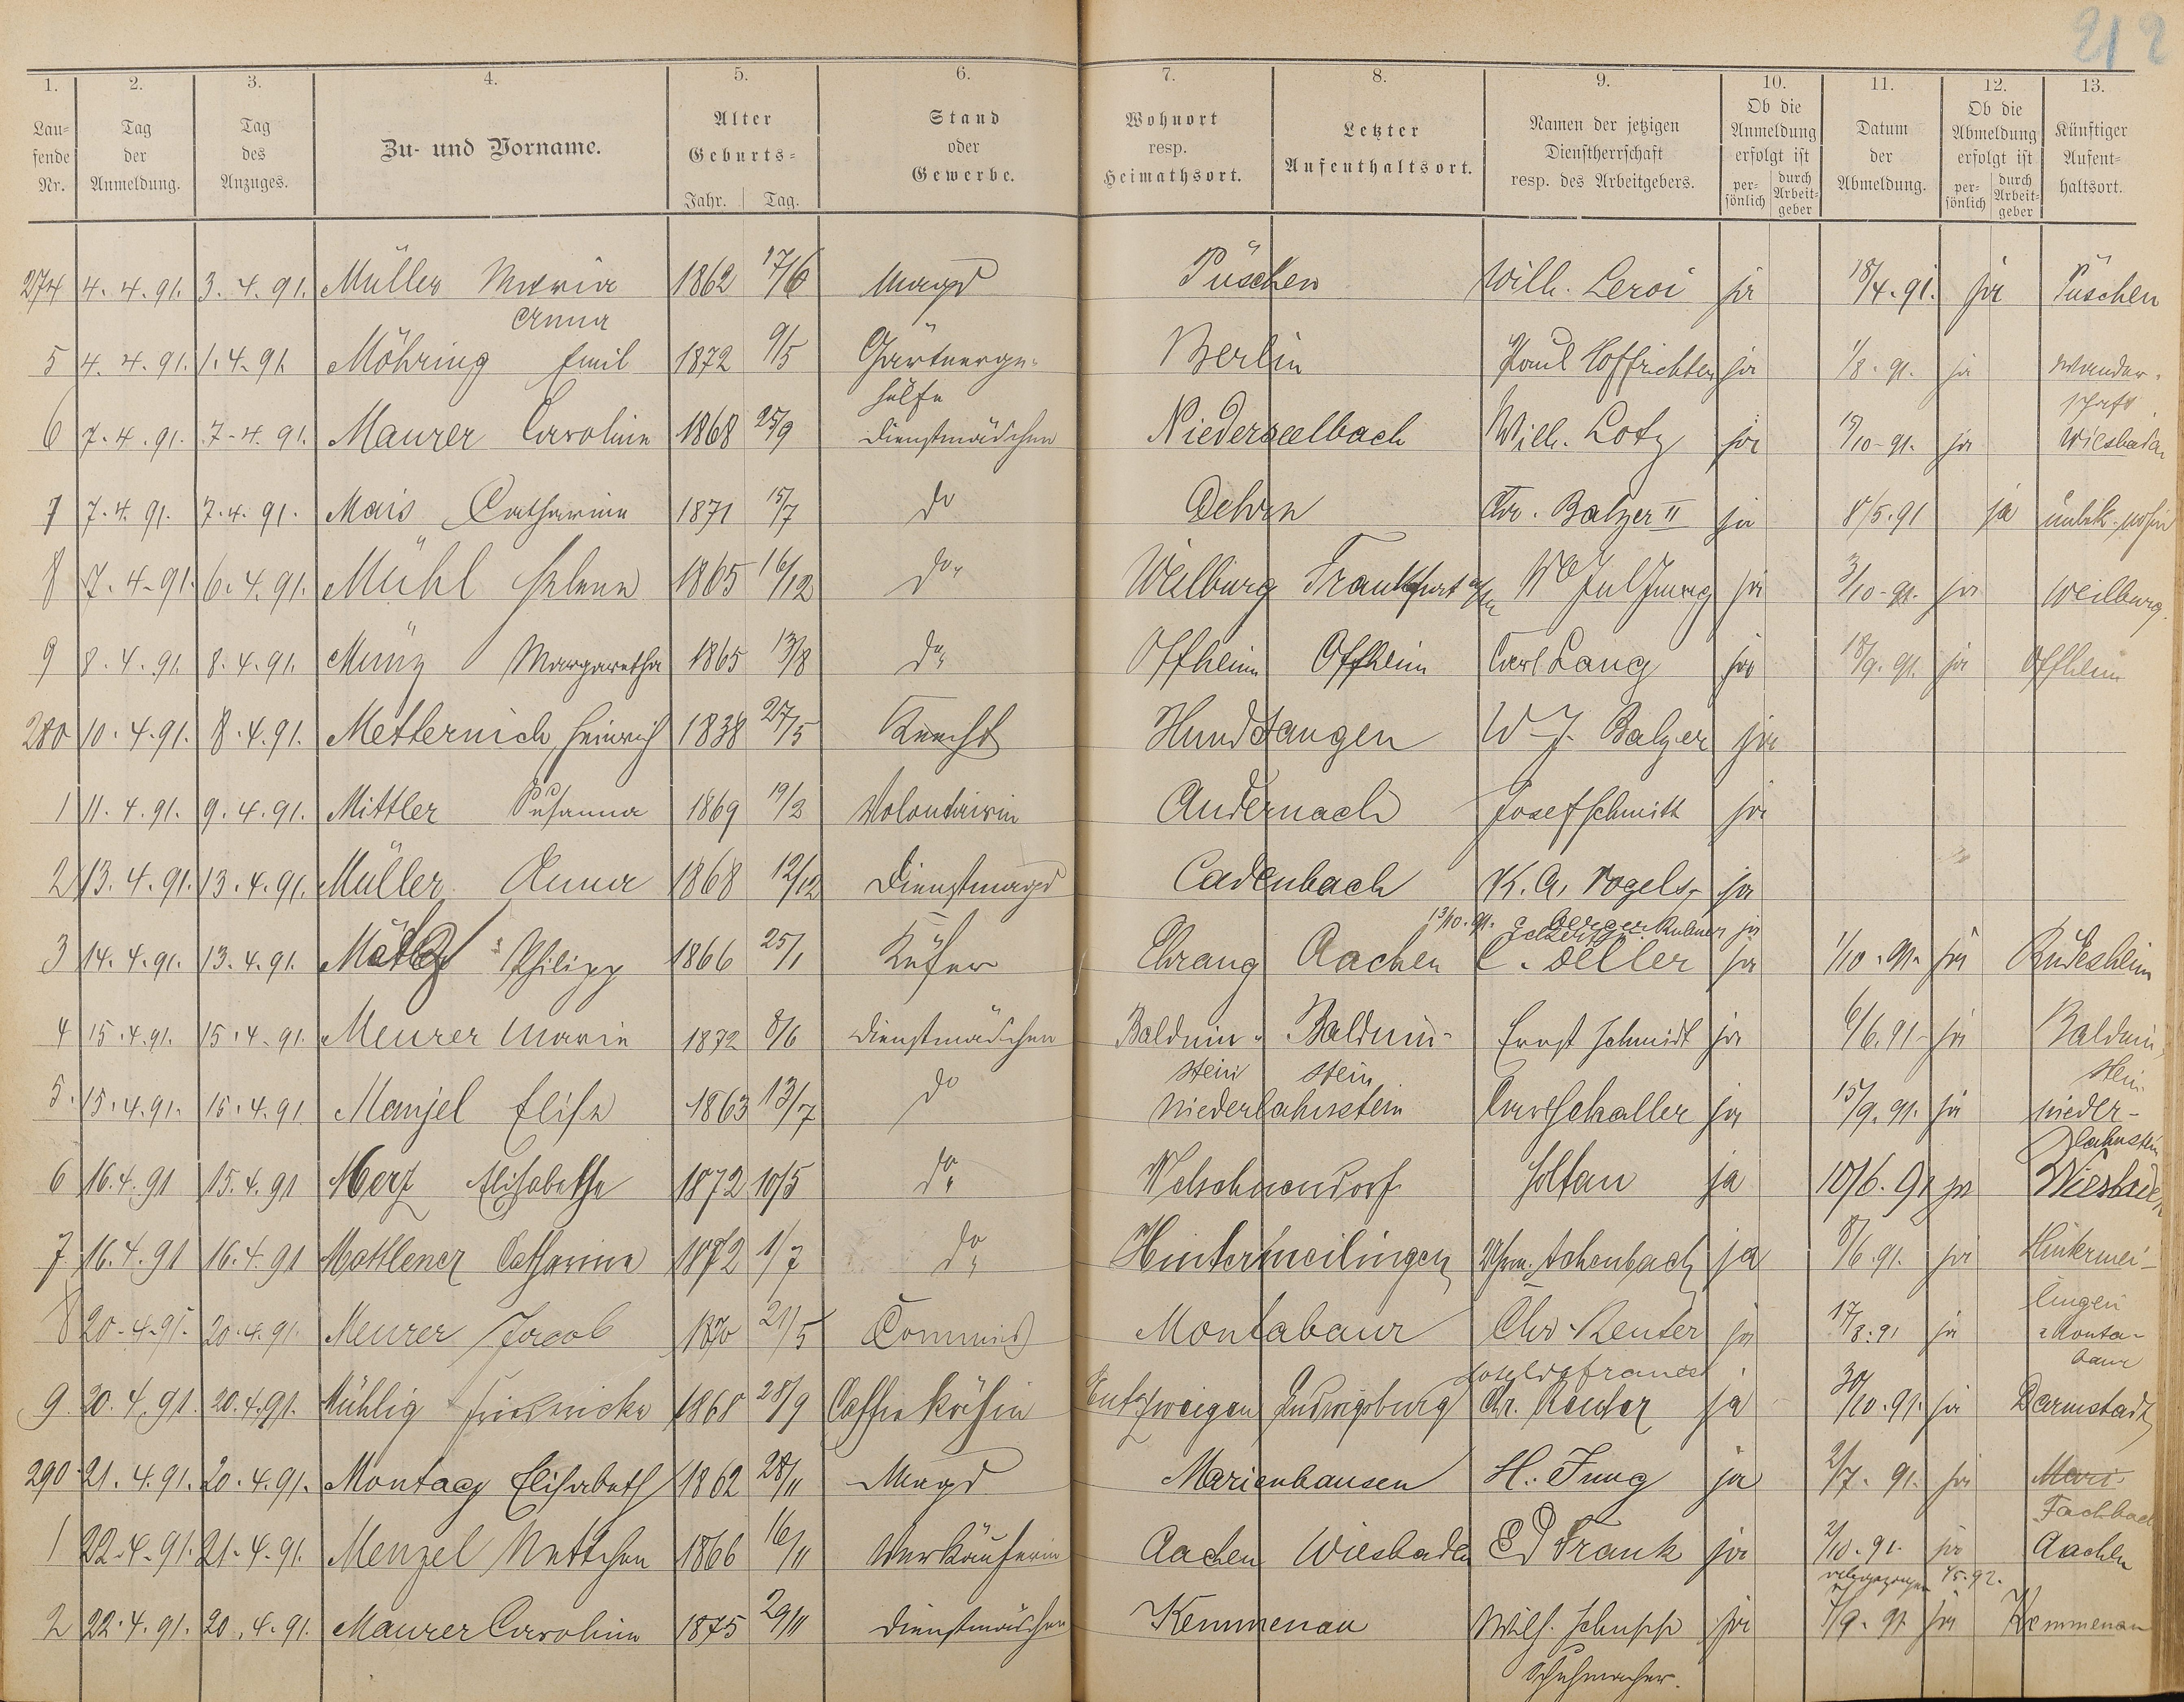 212
1. 2. 3. 4. 5. 6. 7. 8. 9. 10. 11. 12. 13.
Laufende Nr. | Tag der Anmeldung. | Tag des Anzuges. | Zu- und Vorname. | Alter Geburts- Jahr. Tag. | Stand oder Gewerbe. | Wohnort resp. Heimathsort. | Letzter Aufenthaltsort. | Namen der jetzigen Dienstherrschaft resp. des Arbeitgebers. | Ob die Anmeldung erfolgt ist persönlich durch Arbeitgeber | Datum der Abmeldung. | Ob die Abmeldung erfolgt ist persönlich durch Arbeitgeber | Künftiger Aufenthaltsort.
274 4.4.91. 3.4.91. Müller Maria 1862 17/6 Magd Püschen Wilh. Leroi ja 18/4.91. ja Püschen
Anna
5 4.4.91. 1.4.91 Möhring Emil 1872 9/5 Gärtnerge- Berlin Paul Hoffrichter ja 1/8.91. ja Wander-
hülfe schaft
6 7.4.91. 7.4.91. Maurer Caroline 1868 25/9 Dienstmädchen Niederseelbach Wilh. Lotz ja /10.91. ja Wiesbaden
7 7.4.91. 7.4.91. Mais Catharina 1871 15/7 do Dehrn Chr. Balzer II ja 8/5.91 ja unbek. wohin
8 7.4.91. 6.4.91. Mühl Helene 1865 16/12 do. Weilburg Frankfurt a/M Ww Jul Jung ja 3/10.91. ja Weilburg.
9 8.4.91. 8.4.91. Münz Margaretha 1865 13/8 do. Offheim Offheim Carl Lang ja 18/9.91. ja Offheim
280 10.4.91. 8.4.91. Metternich Heinrich 1838 27/5 Knecht Hundsangen W. J. Balzer ja
1 11.4.91. 9.4.91. Mittler Susanna 1869 19/2 Volontairin Andernach Josef Schmitt ja
2 13.4.91. 13.4.91. Müller Anna 1868 12/12 Dienstmagd Cadenbach K. A. Vogels- ja
berger
13/10.91. ja
3 14.4.91. 13.4.91. Philipp 1866 25/1 Küfer Ehrang Aachen C. Deller ja 1/10.91. ja Rüdesheim
4 15.4.91. 15.4.91. Meurer Marie 1872 8/6 Dienstmädchen Balduin- Balduin- Ernst Schmidt ja 6/6.91 ja Balduin-
stein stein stein
5. 15.4.91. 15.4.91 Manjel Elise 1863 13/7 do Niederlahnstein Carl Schaller ja 15/9.91. ja Nieder-
lahnstein
6 16.4.91 15.4.91 Merz Elisabetha 1872 10/5 do. Welschneudorf Holtau ja 10/6.91 ja Wiesbaden
7. 16.4.91 16.4.91 Mattlener Catharina 1872 1/7 do. Hintermeilingen Achenbach ja 8/6.91. ja Hintermei-
lingen
8 20.4.91. 20.4.91. Meurer Jacob 1870 21/5 Commis Montabaur Chr. Reuter ja 17/8.91 ja Monta-
baur
9. 20.4.91 20.4.91. Mühlig Friedricke 1868 28/9 Caffeeköchin Ludwigsburg Chr. Reuter ja 30/10.91. ja Darmstadt
290 21.4.91. 20.4.91. Montag Elisabeth 1862 28/11 Magd Marienhausen H. Jung ja 2/7.91. ja Mari-
Fachbach
1 22.4.91. 21.4.91. Menzel Nettchen 1866 16/11 Verkäuferin Aachen Wiesbaden Ed Frank ja 2/10.91. ja Aachen
2 22.4.91. 20.4.91. Maurer Caroline 1875 29/11 Dienstmädchen Kemmenau Wilh. Schupp ja /9.91. ja Kemmenau
Schuhmacher.